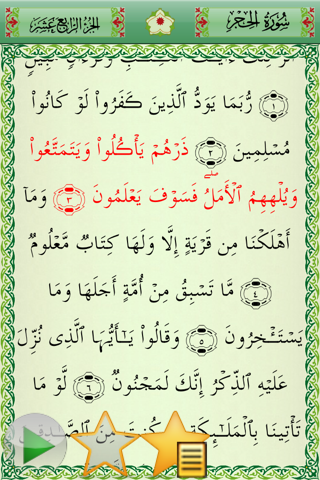 سُورَةُ الحِجْرِ الجُزْءُ الرَّابِعَ عَشَرَ
١ رُّبَمَا يَوَدُّ ٱلَّذِينَ كَفَرُوا۟ لَوْ كَانُوا۟
مُسْلِمِينَ ٢ ذَرْهُمْ يَأْكُلُوا۟ وَيَتَمَتَّعُوا۟
وَيُلْهِهِمُ ٱلْأَمَلُ ۖ فَسَوْفَ يَعْلَمُونَ ٣ وَمَآ
أَهْلَكْنَا مِن قَرْيَةٍ إِلَّا وَلَهَا كِتَابٌ مَّعْلُومٌ
٤ مَّا تَسْبِقُ مِنْ أُمَّةٍ أَجَلَهَا وَمَا
يَسْتَـْٔخِرُونَ ٥ وَقَالُوا۟ يَـٰٓأَيُّهَا ٱلَّذِى نُزِّلَ
عَلَيْهِ ٱلذِّكْرُ إِنَّكَ لَمَجْنُونٌ ٦ لَّوْ مَا
تَأْتِينَا بِٱلْمَلَـٰٓئِكَةِ